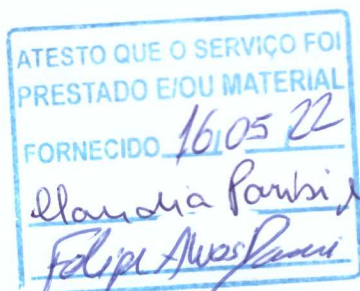 ATESTO QUE O SERVIÇO FOI
PRESTADO E/OU MATERIAL
FORNECIDO 16/05 22
Claudia Parisi
Felipe Alves